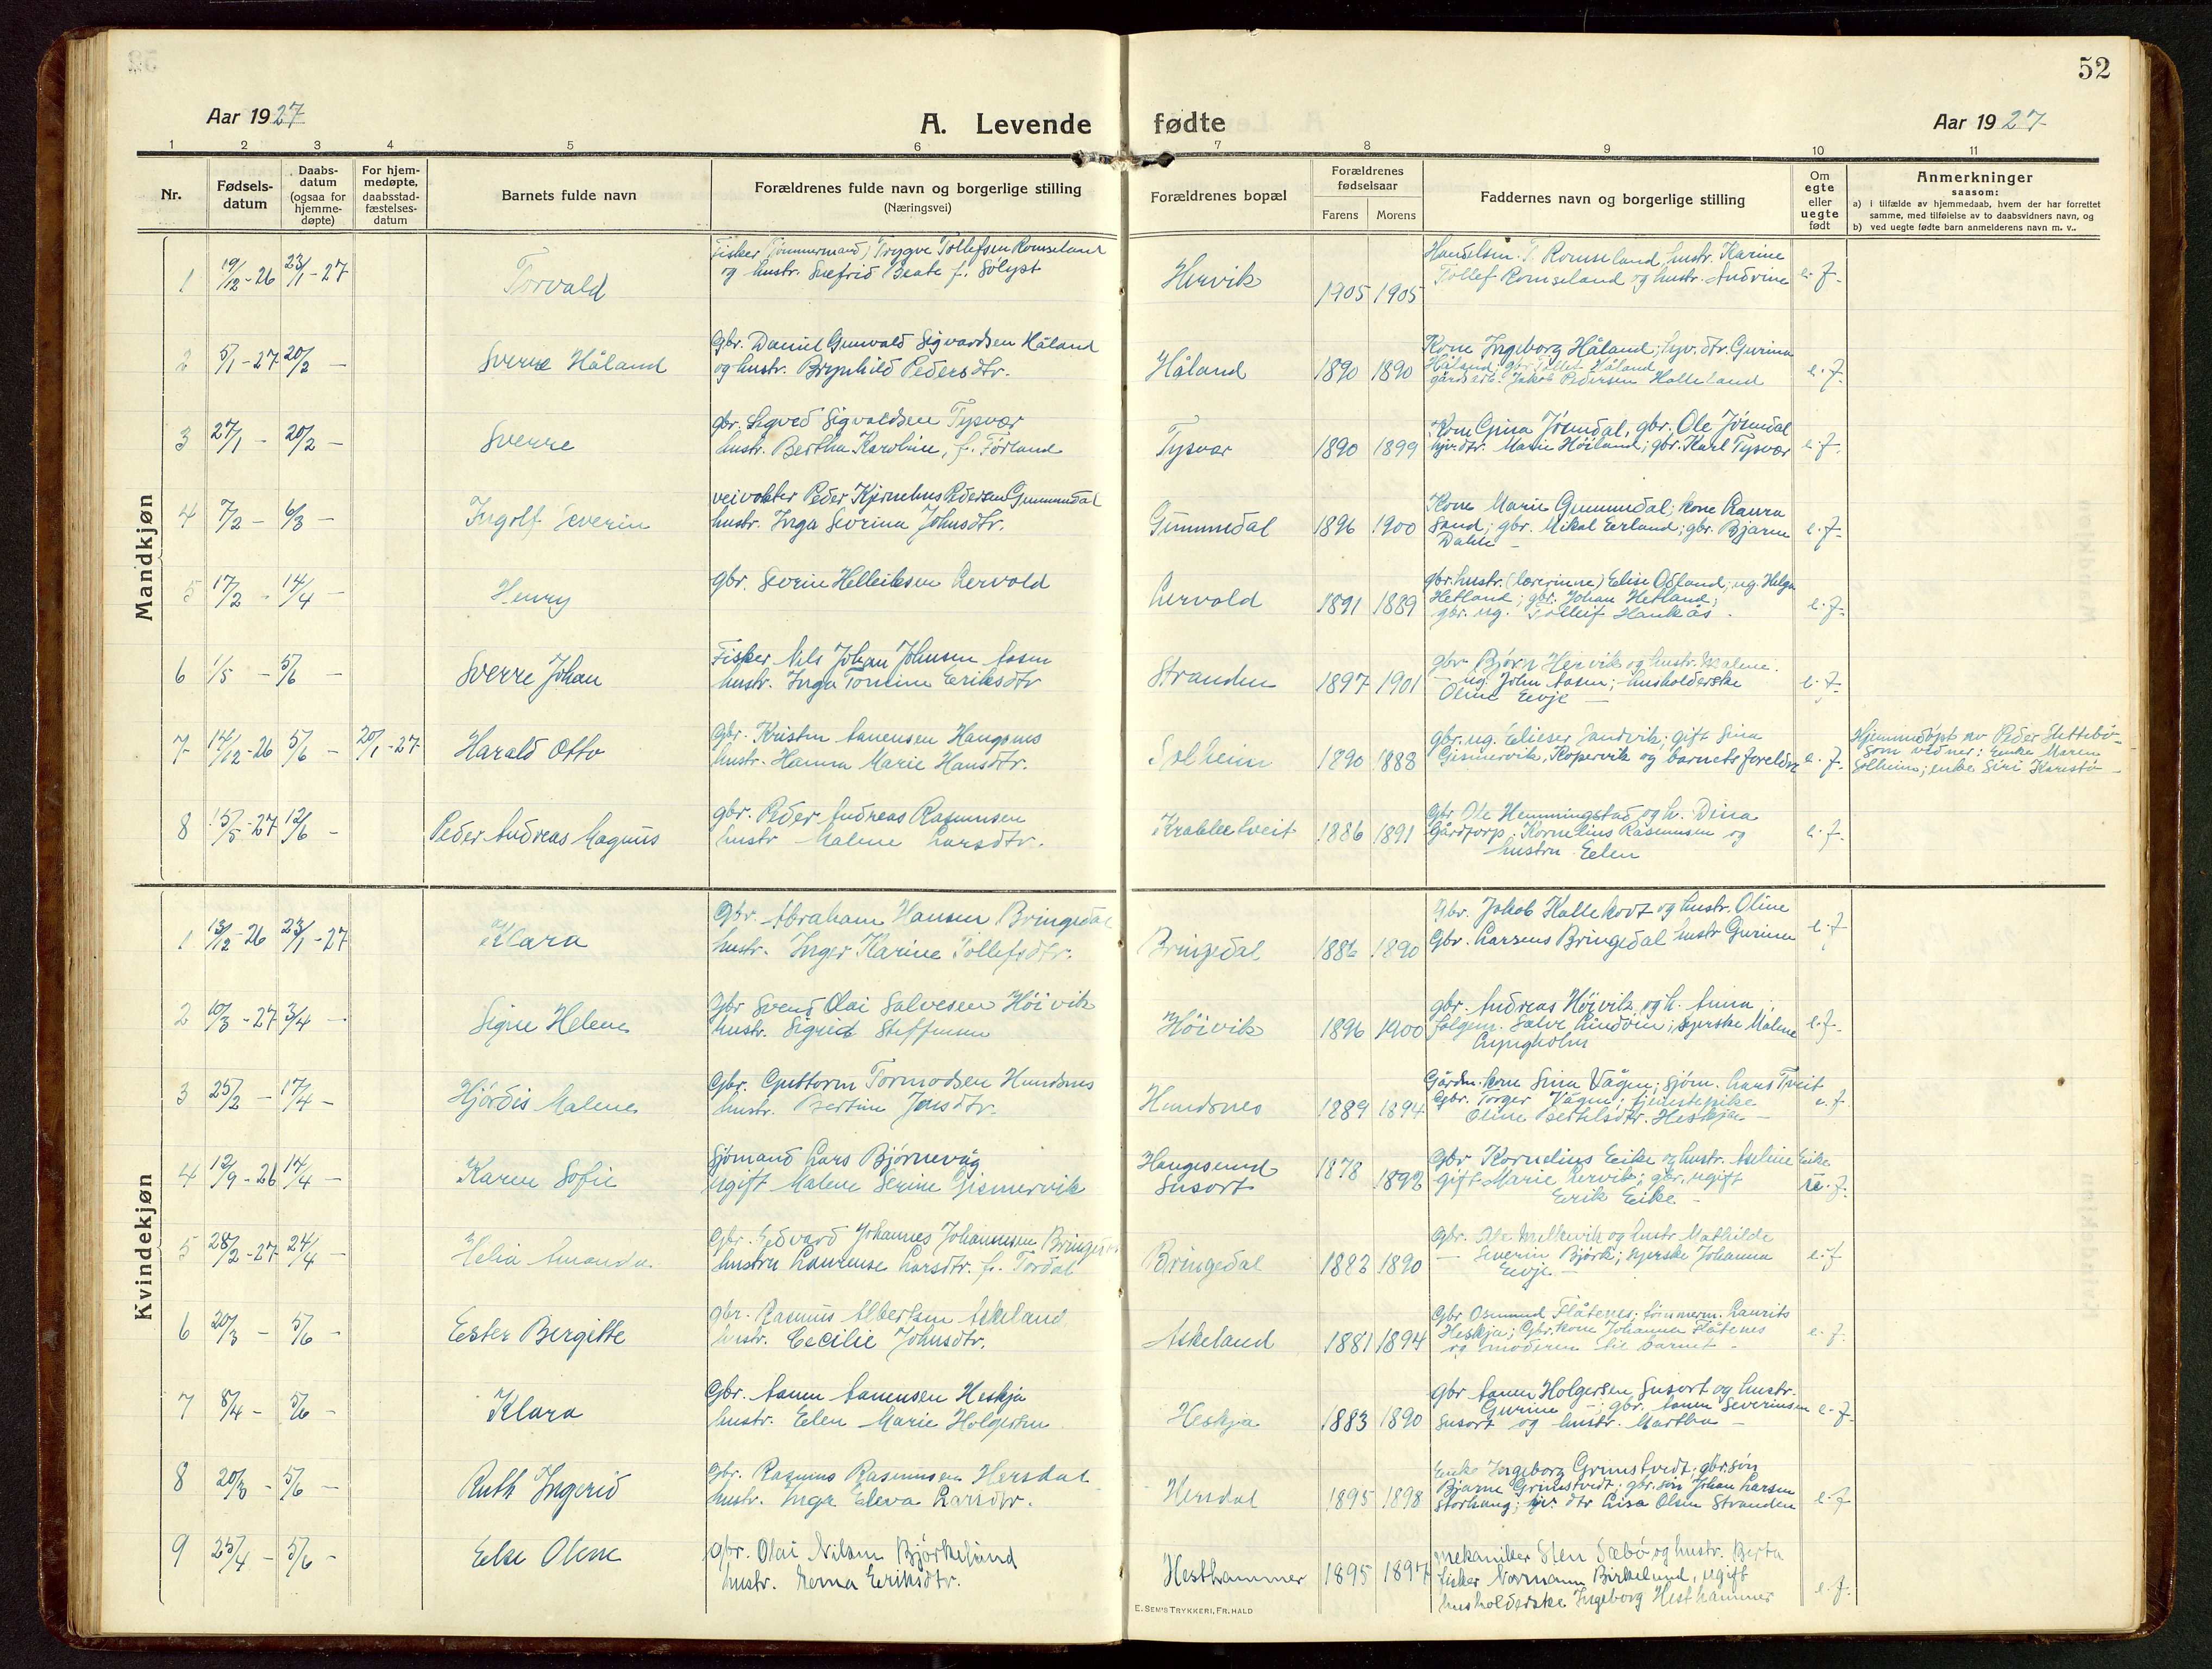 52
Aar 1927
A. Levende fødte
Aar 1927
1 2 3 4 5 6 7 8 9 10 11
Nr.
Fødsels-
datum
Daabs-
datum
(ogsaa for
hjemme-
døpte)
For hjem-
medøpte,
daabsstad-
fæstelses-
datum
Barnets fulde navn
Forældrenes fulde navn og borgerlige stilling
(Næringsvei)
Forældrenes bopæl
Forældrenes
fødselsaar
Farens Morens
Faddernes navn og borgerlige stilling
Om
egte
eller
uegte
født
Anmerkninger
saasom:
a) i tilfælde av hjemmedaab, hvem der har forrettet
samme, med tilføielse av to daabsvidners navn, og
b) ved uegte fødte barn anmelderens navn m. v..
Mandkjøn
1 19/12-26 23/1-27 Torvald
Fisker (Tømmermand) Trygve Tollefsen Romseland
og hustr. Beate f.
Hervik 1905 1905
T. Romseland, hustr. Karine
Tollef Romseland og hustr. Andrine
e. f.
2 5/1-27 20/2 - Sverre Håland
Gbr. Daniel Gunvald Sigvardsen Håland
og hustr. Brynhild Pedersdtr.
Håland 1890 1890
Kone Ingeborg Håland; hjv. dtr. Gurine
Håland; gbr. Tollef Håland
Jakob Pedersen Halleland
e. f.
3 27/1 - 20/2 - Sverre
gbr. Sigved Sigvaldsen Tysvær
hustr. Bertha Karoline, f. Førland
Tysvær 1890 1899
Kone Gina Jørmdal, gbr. Ole Jørmdal
hjv. dtr. Marie Høiland; gbr. Karl Tysvær
e. f.
4 7/2 - 6/3 - Ingolf Severin
veivokter Peder Kjernelius Pedersen Grummedal
hustr. Inga Sevrina Johnsdtr.
Grummedal 1896 1900
Kone Marie Grummedal; kone Laura
Sand; gbr. Mikal Eerland; gbr. Bjarne
Dahle -
e. f.
5 17/2 - 14/4 - Henry
gbr. Sevrin Helleiksen Lervold
Lervold 1891 1889
gbr. hustr. (lærerinne) Elise Odland; ug. Helga
Hetland; gbr. Johan Hetland;
gbr. ug. Tolleif Haukås.
e. f.
6 1/5 - 5/6 - Sverre Johan
Fisker Nils Johan Johnsen Aasen
hustr. Inga Tomine Eriksdtr
Stranden 1897 1901
gbr Bjørn Hervik og hustr. Malene.
ug. John Aasen; husholderske
Oline Eevje -
e. f.
7 14/12-26 5/6 - 20/1-27 Harald Otto
Gbr. Kristen Aanensen
hustr. Hanna Marie Hansdtr.
Solheim 1890 1888
gbr. ug. Elieser Sandvik; gift Sina
Gismervik, Kopervik og barnets foreldre
e. f.
Hjemmedøpt av Peder
Som vidner: Enke Maren
Solheim; enke Siri Karstø -
8 15/5-27 12/6 - Peder Andreas Magnus
gbr. Peder Andreas Rasmussen
hustr Malene Larsdtr.
Krabbetveit 1886 1891
Gbr. Ole Hemmingstad og h. Dina
Kornelius Rasmussen og
hustru Eelen
e. f.
Kvindekjøn
1 13/12-26 23/1-27 Klara
Gbr. Abraham Hansen Bringedal
hustr. Inger Karine Tollefsdtr.
Bringedal 1886 1890
Gbr. Jakob og hustr. Oline
Gbr. Larsens Bringedal hustr Gurine
e. f
2 10/3-27 3/4 - Signe Helene
Gbr Svend Olai Salvesen Høivik
hustr. Sigrid Steffensen
Høivik 1896 1900
gbr. Andreas Høivik og h. Anna;
Salve Lindøen; syerske Malene
Lyngholm
e. f.
3 25/2 - 17/4 - Hjørdis Malene
Gbr. Guttorm Tormodsen Hundsnes
hustr. Bertine Jonsdtr.
Hundsnes 1889 1894
Gårdm. kone Sina Vågen; sjøm. Lars Tveit
Gbr. Torger Vågen; tjenestepike
Oline Bertelsdtr. Heskja -
e. f.
4 12/9-26 14/4 - Karen Sofie
Sjømand Lars Bjørnevåg
Ugift Malene Serine Gismervik
Haugesund
Susort 1878 1892
Gbr Kornelius Eeike og hustr. Aseline Eeike
gift Marie Lervik; gbr. ugift
Erik Eeike -
ue. f.
5 28/2-27 24/4 - Helia Amanda
Gbr. Edvard Johannes Johannesen Bringedal
hustru Laurense Larsdtr. f. Tordal
Bringedal 1882 1890
Gbr. Ole Melkevik og hustr Mathilde
- Severin Bjørk; syerske Johanna
Eevje -
e. f
6 20/3 - 5/6 - Eester Bergitte
gbr. Rasmus Albertsen Askeland
hustr. Cecilie Johnsdtr.
Askeland 1881 1894
Gbr Osmund Flåtenes; tømmerm. Laurits
Heskja; Gbr. kone Johanna Flåtenes
og moderen til barnet -
e. f.
7 8/4 - 5/6 - Klara
Gbr. Aanen Aanensen Heskja
hustr. Eelen Marie Holgersen
Heskja 1883 1890
gbr Aanen Holgersen Susort og hustr.
Gurine -; gbr. Aanen Severinsen
Susort og hustr. Martha -
e. f.
8 20/3 - 5/6 - Ruth Ingerid
Gbr. Rasmus Rasmussen Hersdal
hustr. Inga Eleva Larsdtr.
Hersdal 1895 1898
Enke Ingeborg Grimstvedt; gbr. søn
Bjarne Grimstvedt; gbr. søn Johan Larsen
Storhaug; hjv dtr Lisa Olsen Stranden
e. f
9 25/4 - 5/6 - Else Olene
gbr. Olai Nilsen Bjørkelund
hustr. Erna Eeriksdtr.
Hesthammer 1895 1897
Mekaniker Sten Sæbø og hustr. Berta
fisker Normann Birkelund, ugift
husholderske Ingeborg Hesthammer
e. f.
E. SEM'S TRYKKERI, FR.HALD